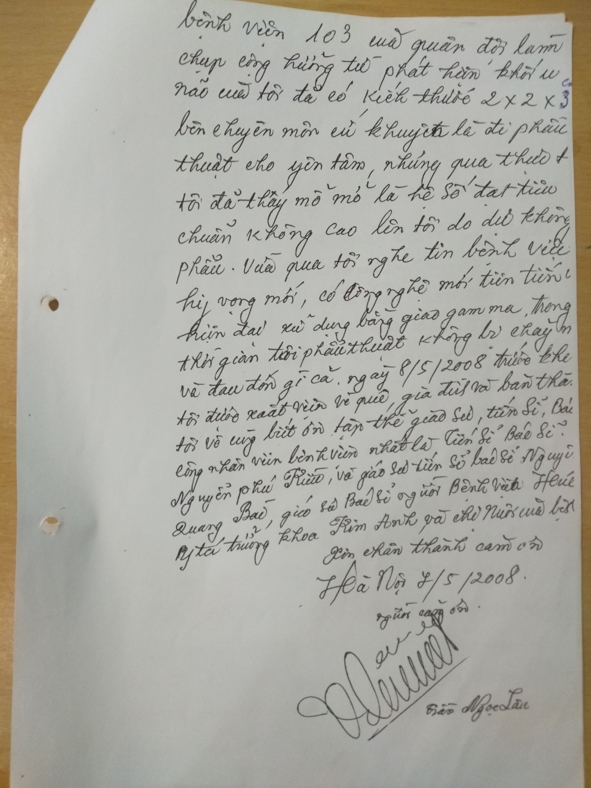 bệnh viện 103 của quân đội làm
chụp cộng hưởng từ phát hiện khối u
não của tôi đã có kích thước 2 x 2 x 3
bên chuyên môn cứ khuyên là đi phẫu
thuật cho yên tâm, nhưng qua thực t
tôi đã thấy mổ mở là hệ số đạt tiêu
chuẩn không cao lên tôi do dự không
phẫu. Vừa qua tôi nghe tin bệnh viện
hy vọng mới, có công nghệ mới tiên tiến
hiện đại xử dụng bằng giao gam ma, trong
thời gian tôi phẫu thuật không bị chảy m
và đau đớn gì cả. ngày 8/5/2008 trước khi
tôi được xuất viện về quê, gia đình và bản thâ
tôi vô cùng biết ơn tập thể giáo sư, tiến sĩ, Bác
công nhân viên bệnh viện nhất là Tiến sĩ Bác sĩ.
Nguyễn phú, và giáo sư tiến sĩ bác sĩ Nguyễ
Quang Bài, giáo sư Bác sĩ người Bệnh viện Huế
y tá trưởng khoa Kim Anh, và chị
Xin chân thành cảm ơn
Hà Nội 7/5/2008.
người cảm ơn.
trần Ngọc Lâu